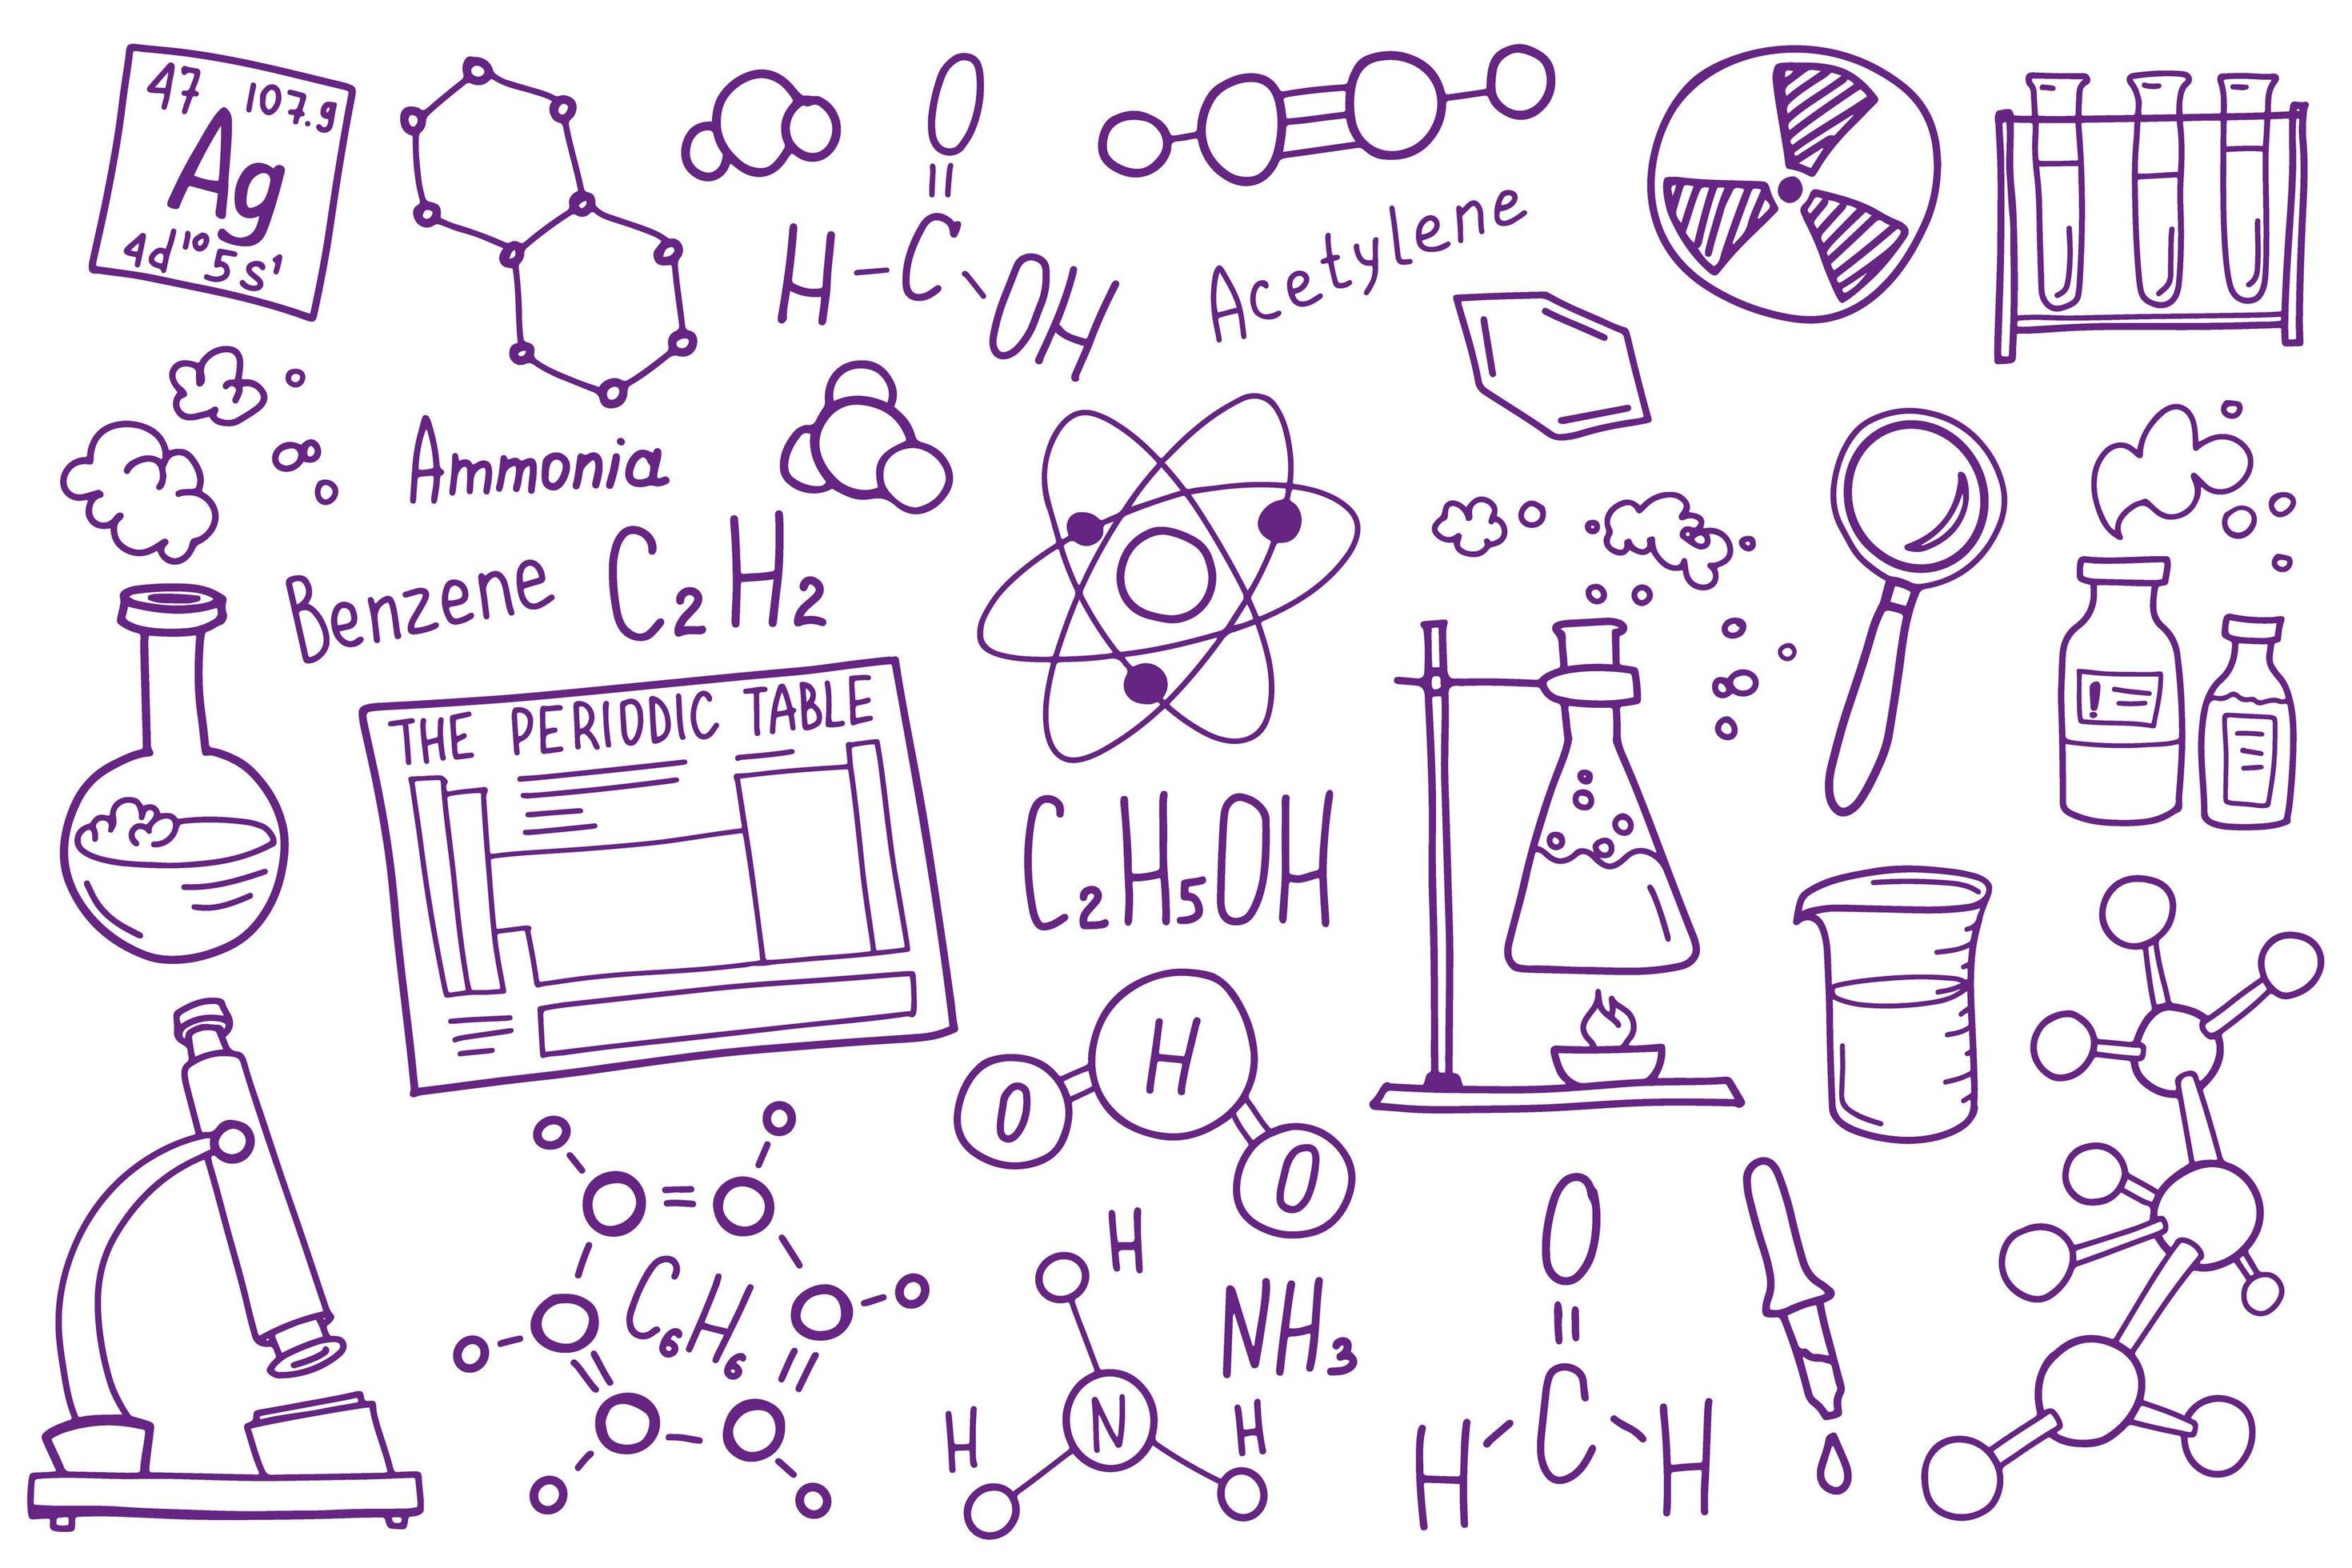 47 107.9
Ag
4d¹⁰5s¹
O
=
H-C-OH
Acetylene
Ammonia
Benzene C₂H₂
THE PERIODIC TABLE
C₂H₅OH
O H O
C₆H₆
H
NH₃
H N H
O
=
H C H
!